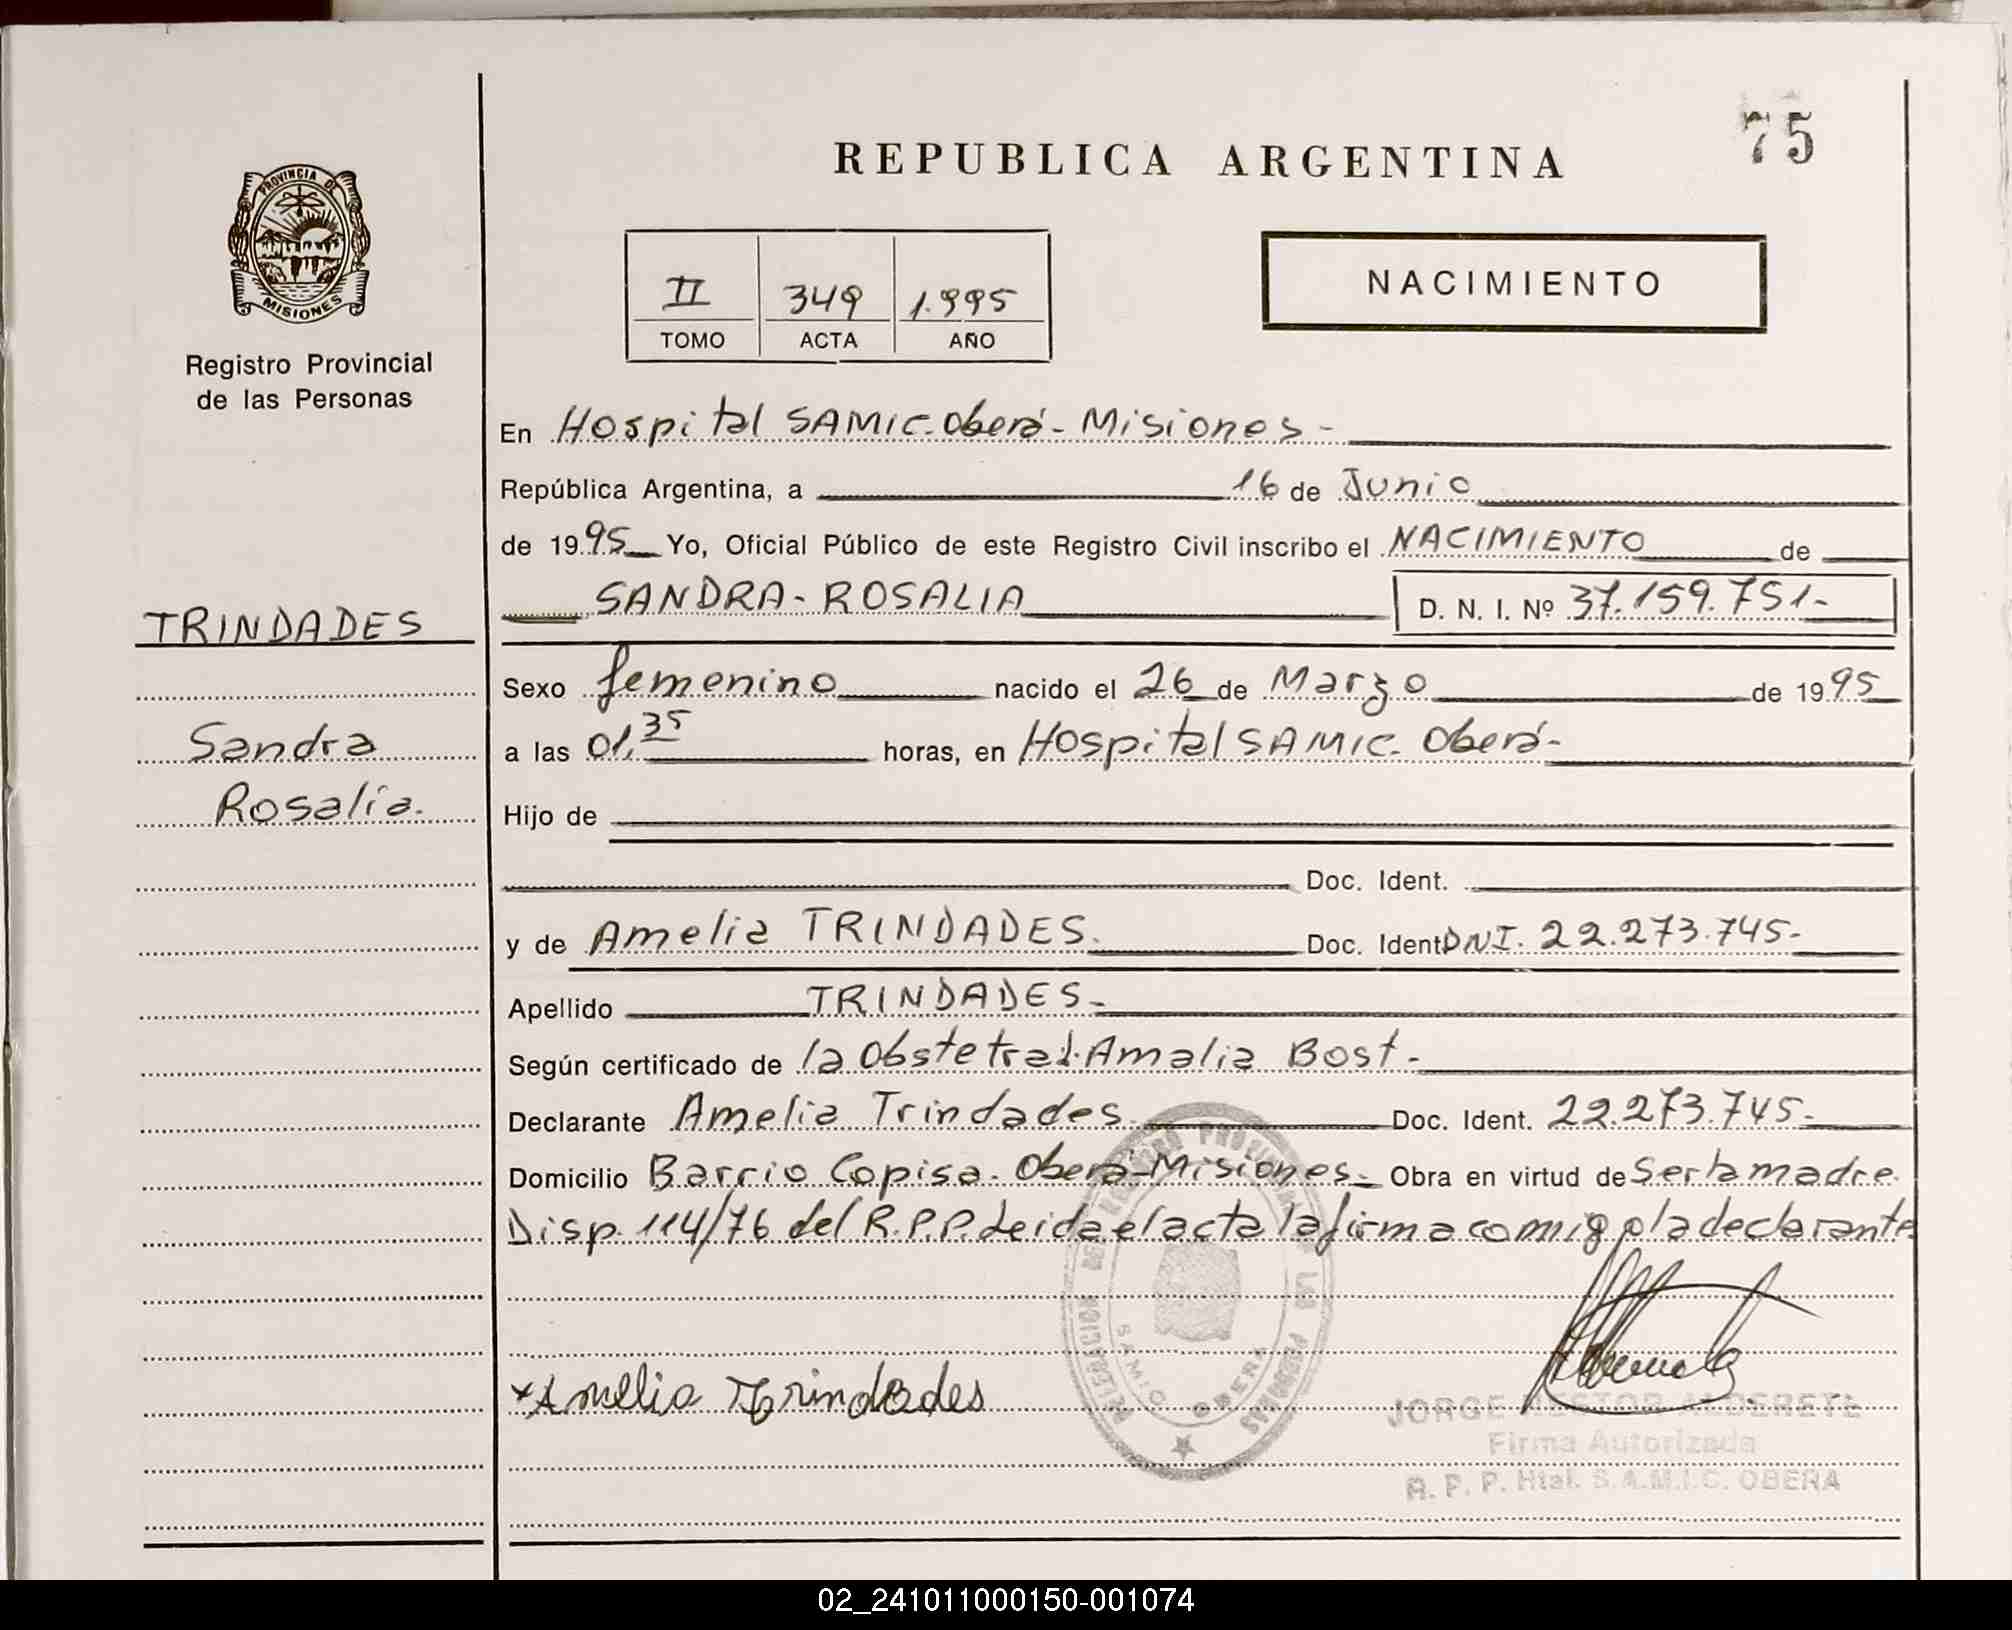 75
REPUBLICA ARGENTINA
PROVINCIA DE
MISIONES
Registro Provincial
de las Personas
II 349 1.995
TOMO ACTA AÑO
NACIMIENTO
En Hospital SAMIC. Oberá - Misiones -
República Argentina, a 16 de Junio
de 1995 Yo, Oficial Público de este Registro Civil inscribo el NACIMIENTO de
SANDRA - ROSALIA D. N. I. Nº 37.159.751.-
TRINDADES
Sandra
Rosalia.
Sexo femenino nacido el 26 de Marzo de 1995
a las 01,35 horas, en Hospital SAMIC. Oberá -
Hijo de
Doc. Ident.
y de Amelia TRINDADES. Doc. Ident DNI. 22.273.745-
Apellido TRINDADES -
Según certificado de la Obstetra: Amalia Bost -
Declarante Amelia Trindades. Doc. Ident. 22.273.745-
Domicilio Barrio Copisa. Oberá - Misiones - Obra en virtud de Ser la madre.
Disp. 114/76 del R.P.P. Leida el acta la firma comigo la declarante
DELEGACION DE REGISTRO PROVINCIAL LAS PERSONAS
SAMIC OBERA
*Amelia Trindades
JORGE NESTOR ALDERETE
Firma Autorizada
R. P. P. Htal. S.A.M.I.C. OBERA
02_241011000150-001074